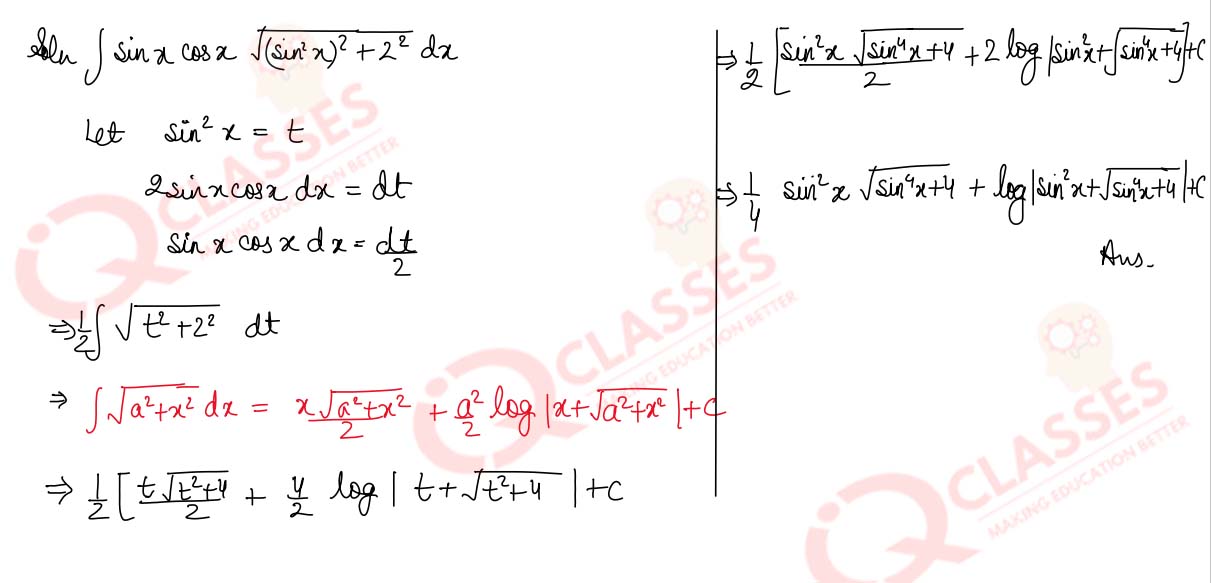 Soln ∫ sin x cos x √((sin²x)² + 2²) dx
Let sin² x = t
2 sin x cos x dx = dt
sin x cos x dx = dt/2
⇒ 1/2 ∫ √(t² + 2²) dt
⇒ ∫ √(a² + x²) dx = x√(a² + x²)/2 + a²/2 log |x + √(a² + x²)| + C
⇒ 1/2 [ t√(t² + 4)/2 + 4/2 log | t + √(t² + 4) | + C
⇒ 1/2 [ sin²x √(sin⁴x + 4)/2 + 2 log |sin²x + √(sin⁴x + 4)] + C
⇒ 1/4 sin²x √(sin⁴x + 4) + log |sin²x + √(sin⁴x + 4)| + C
Ans.
CLASSES
MAKING EDUCATION BETTER
CLASSES
MAKING EDUCATION BETTER
CLASSES
MAKING EDUCATION BETTER